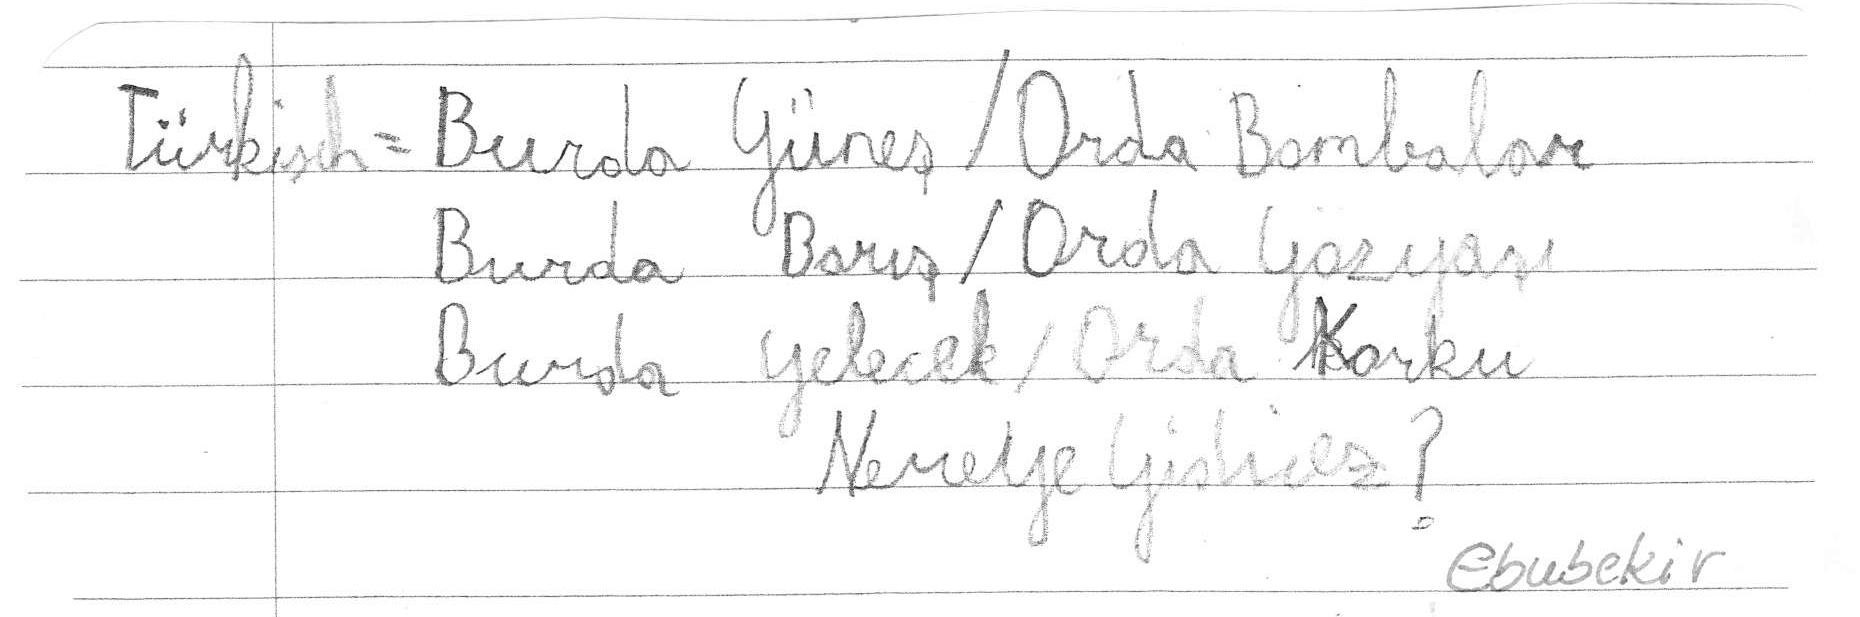 Türkisch = Burda Güneş / Orda Bombalar
Burda Barış / Orda Gözyaşı
Burda gelecek / Orda Korku
Nereye Gidicez?
Ebubekir